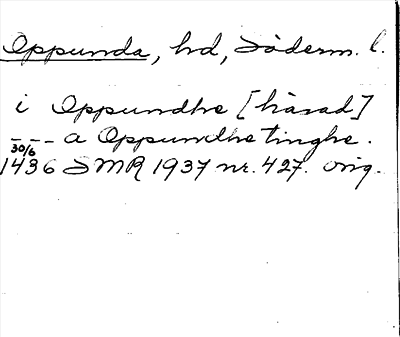 Oppunda, hd, Söderm. l.
i Oppundhe [härad]
--- a Oppundhe tinghe.
30/6
1436 SMR 1937 nr. 427. orig.